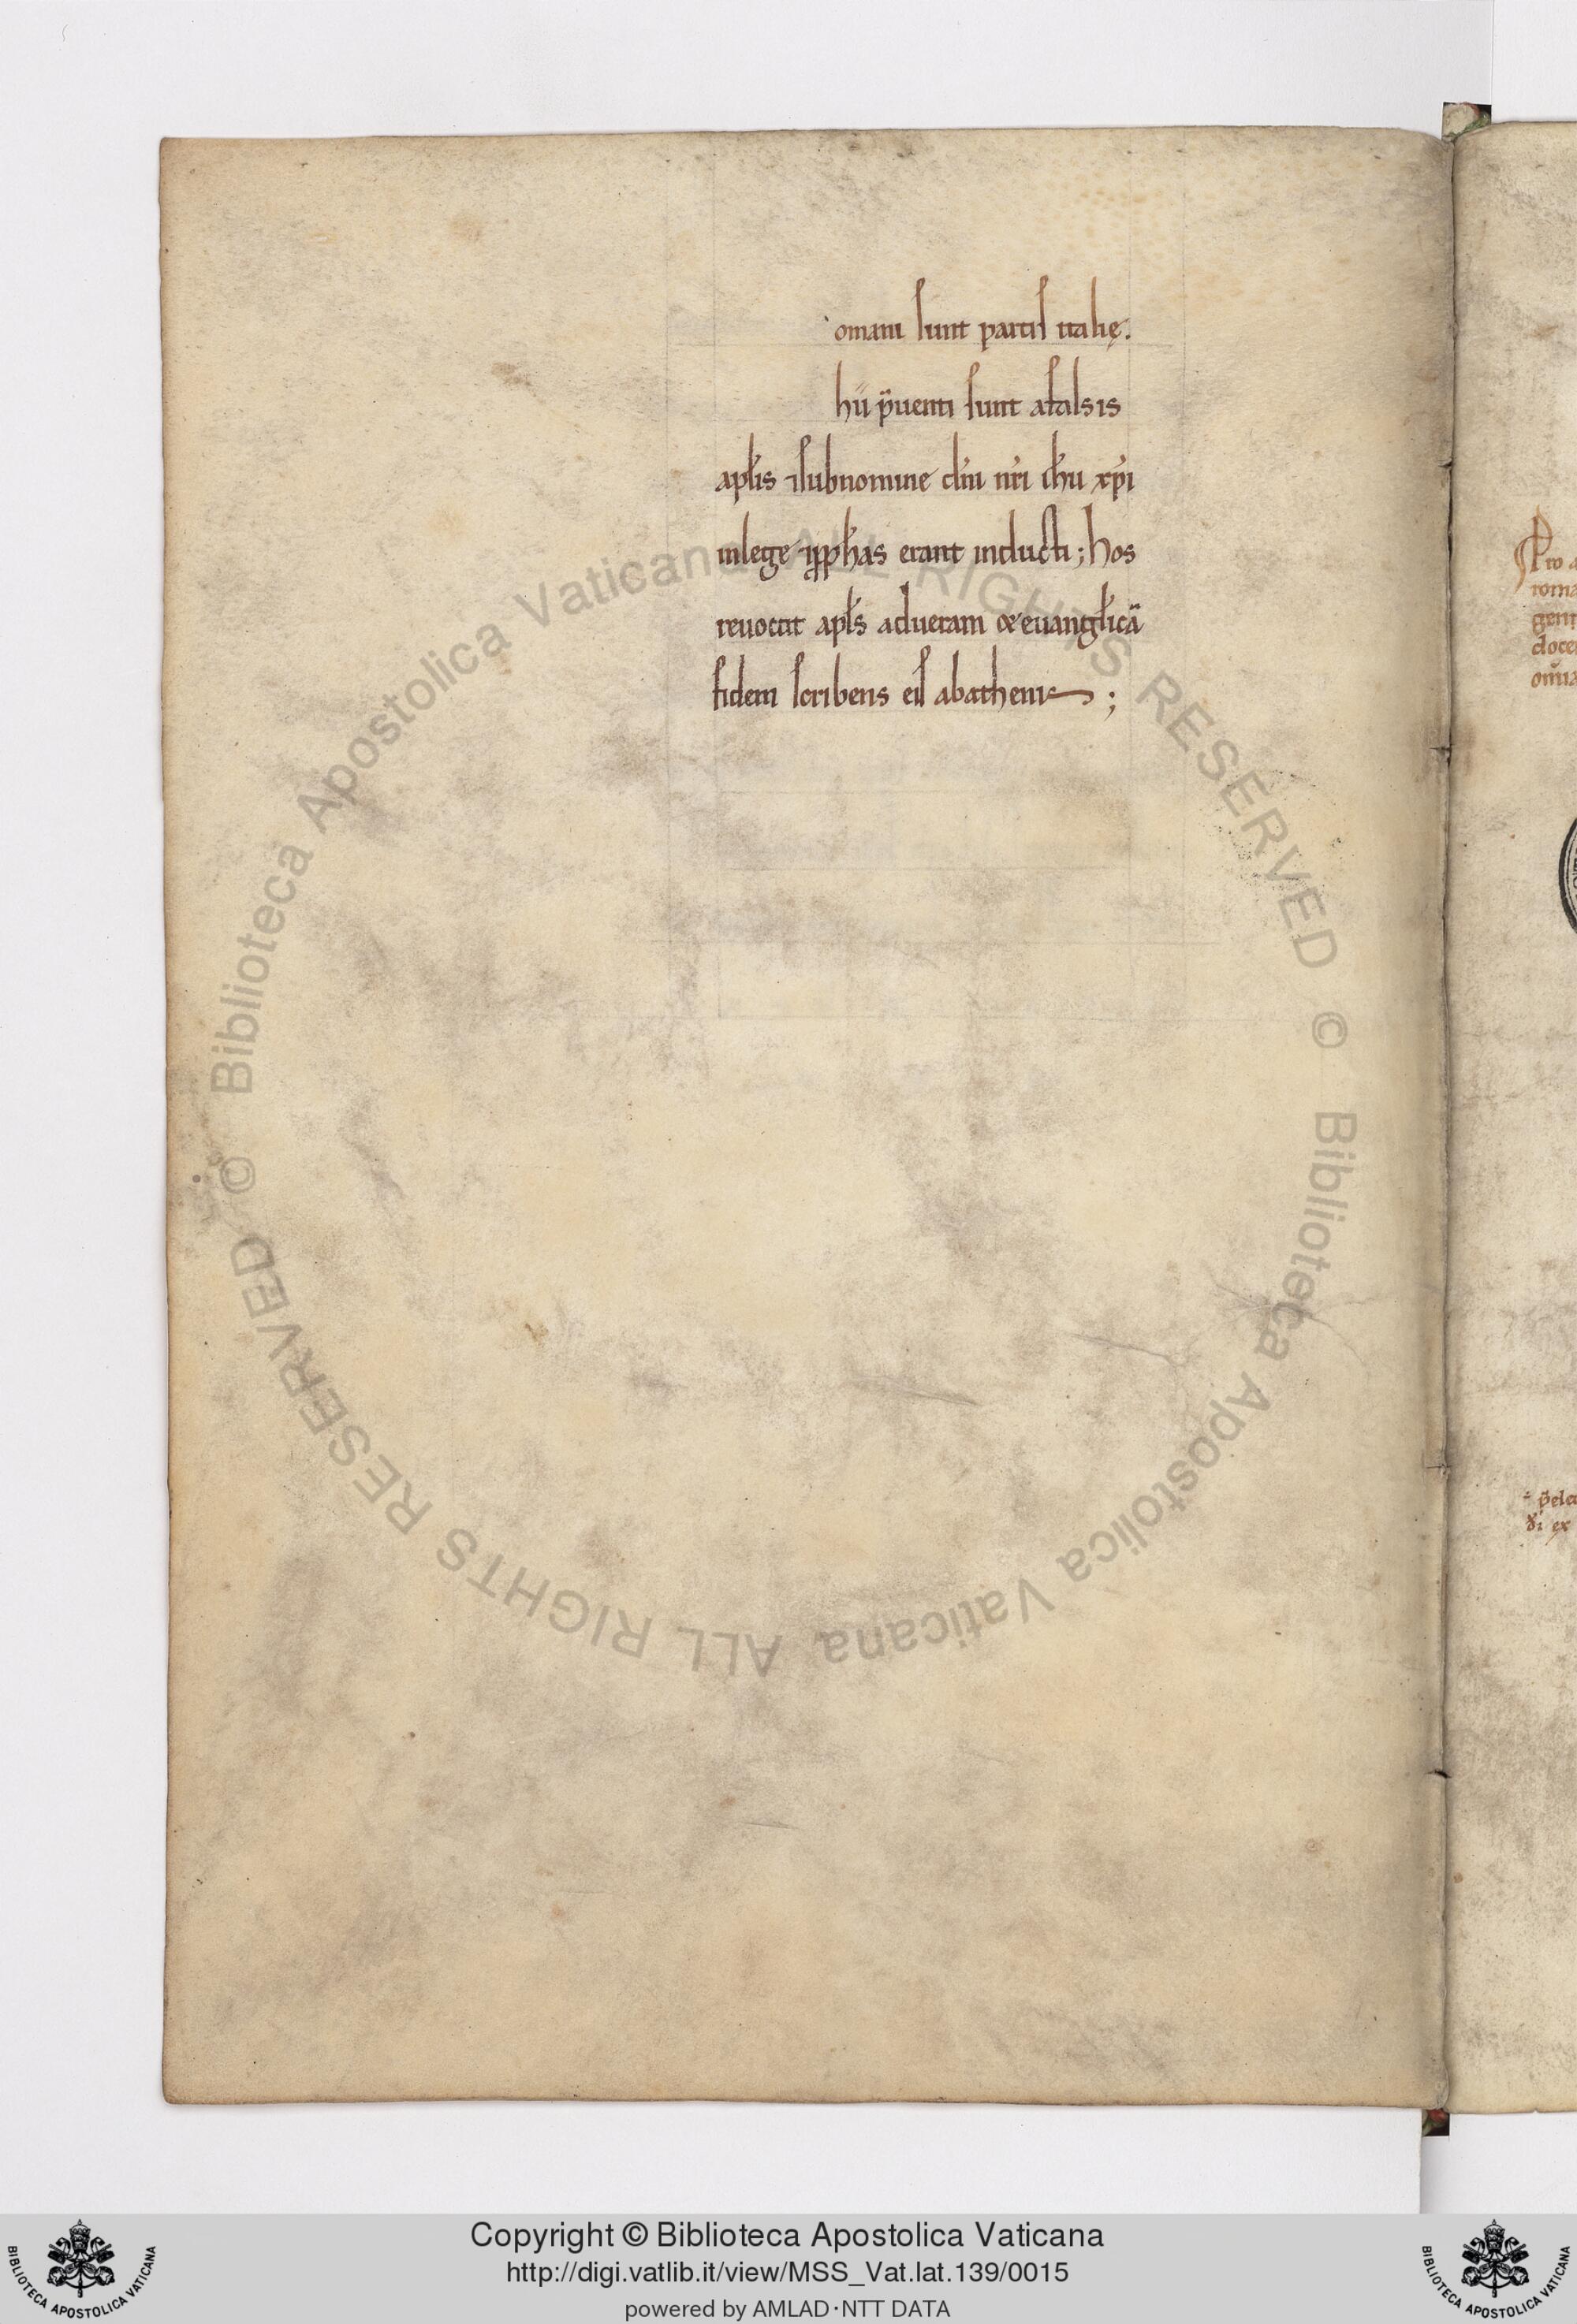 omani sunt partis italię.
hii p̄uenti sunt afalsis
apl̓is ⁊subnomine dn̄i nr̄i ih̓u xp̄i
inlege ⁊ꝓph̓as erant inducti; hos
reuocat apl̓s adueram &euangl̓icā
fidem scribens eis abathenis ;
Pro a
roma
gent
doce
om̄ia
p̄elec
ex
© Biblioteca Apostolica Vaticana ALL RIGHTS RESERVED © Biblioteca Apostolica Vaticana ALL RIGHTS RESERVED
BIBLIOTECA APOSTOLICA VATICANA
Copyright © Biblioteca Apostolica Vaticana
http://digi.vatlib.it/view/MSS_Vat.lat.139/0015
powered by AMLAD·NTT DATA
BIBLIOTECA APOSTOLICA VATICANA